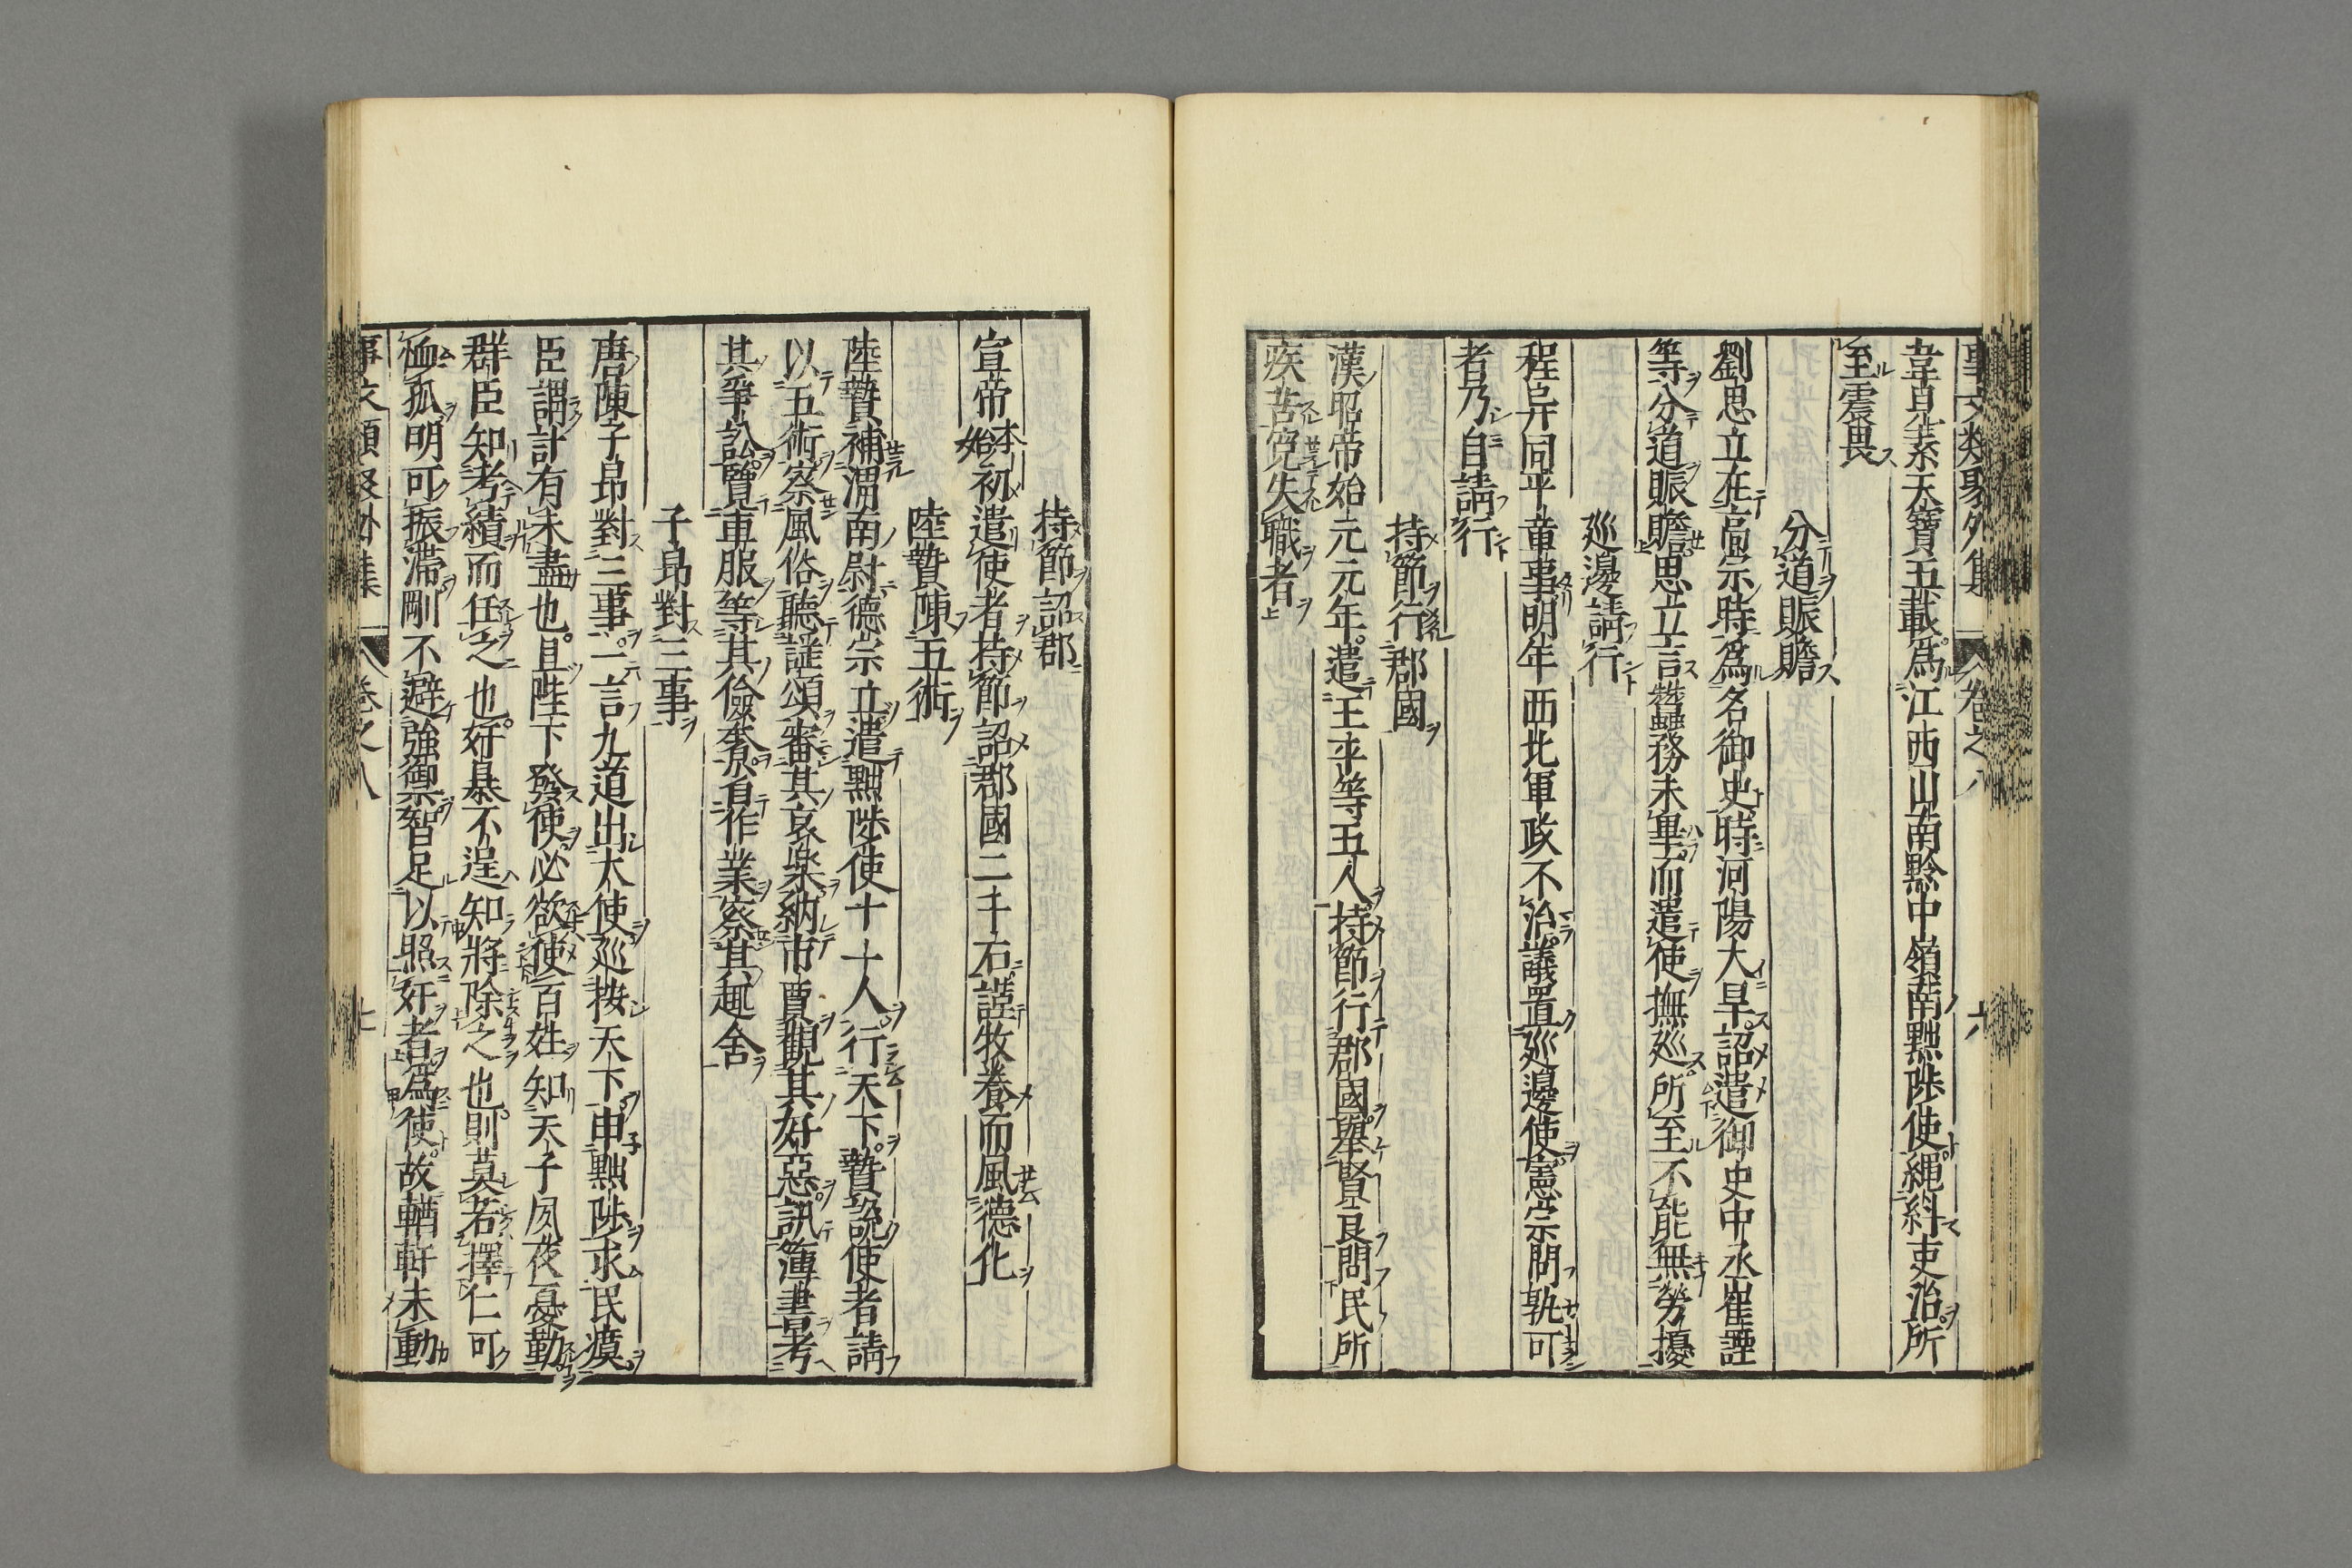 事文類聚外集 卷之八 六
韋見素天寶五載爲江西山南黔中嶺南黜陟使繩糾吏治所
至震畏
分道賑贍
劉思立在高宗時爲名御史時河陽大旱詔遣御史中丞崔謐
等分道賑贍思立言蠶務未畢而遣使撫巡所至不能無勞擾
巡邊請行
程异同平章事明年西北軍政不治議置巡邊使憲宗問孰可
者乃自請行
持節行郡國
漢昭帝始元元年遣王平等五人持節行郡國舉賢良問民所
疾苦寃失職者
持節詔郡
宣帝本始初遣使者持節詔郡國二千石謹牧養而風德化
陸贄陳五術
陸贄補渭南尉德宗立遣黜陟使十一人行天下贄說使者請
以五術察風俗聽謠頌審其哀樂納市賈觀其好惡訊簿書考
其爭訟覽車服等其儉奢省作業察其趣舍
子昻對三事
唐陳子昻對三事一言九道出大使巡按天下申黜陟求民瘼
臣謂計有未盡也且陛下發使必欲使百姓知天子夙夜憂勤
群臣知考績而任之也奸暴不逞知將除之也則莫若擇仁可
恤孤明可振滯剛不避強禦智足以照奸者爲使故輶軒未動
事文類聚外集 卷之八 七